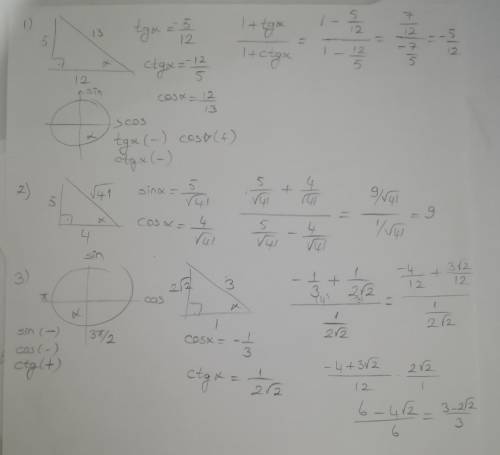 1) 5 13 12 x
tgx = -5/12
ctgx = -12/5
cosx = 12/13
(1 + tgx)/(1 + ctgx) = (1 - 5/12)/(1 - 12/5) = (7/12)/(-7/5) = -5/12
sin
>cos
x
tgx (-) cosx (+)
ctgx (-)
2) 5 √41 4 x
sinx = 5/√41
cosx = 4/√41
(5/√41 + 4/√41)/(5/√41 - 4/√41) = (9/√41)/(1/√41) = 9
3) sin
π x cos
3π/2
sin (-)
cos (-)
ctg (+)
2√2 3 1 x
cosx = -1/3
ctgx = 1/2√2
(-1/3 + 1/2√2)/(1/2√2) = (-4/12 + 3√2/12)/(1/2√2)
(-4 + 3√2)/12 · 2√2/1
(6 - 4√2)/6 = (3 - 2√2)/3